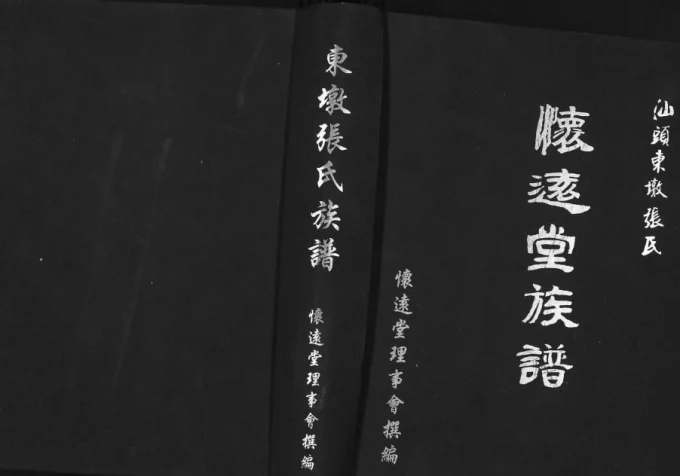 汕頭東墩張氏
懷遠堂族譜
懷遠堂理事會撰編
東墩張氏族譜
懷遠堂理事會撰編